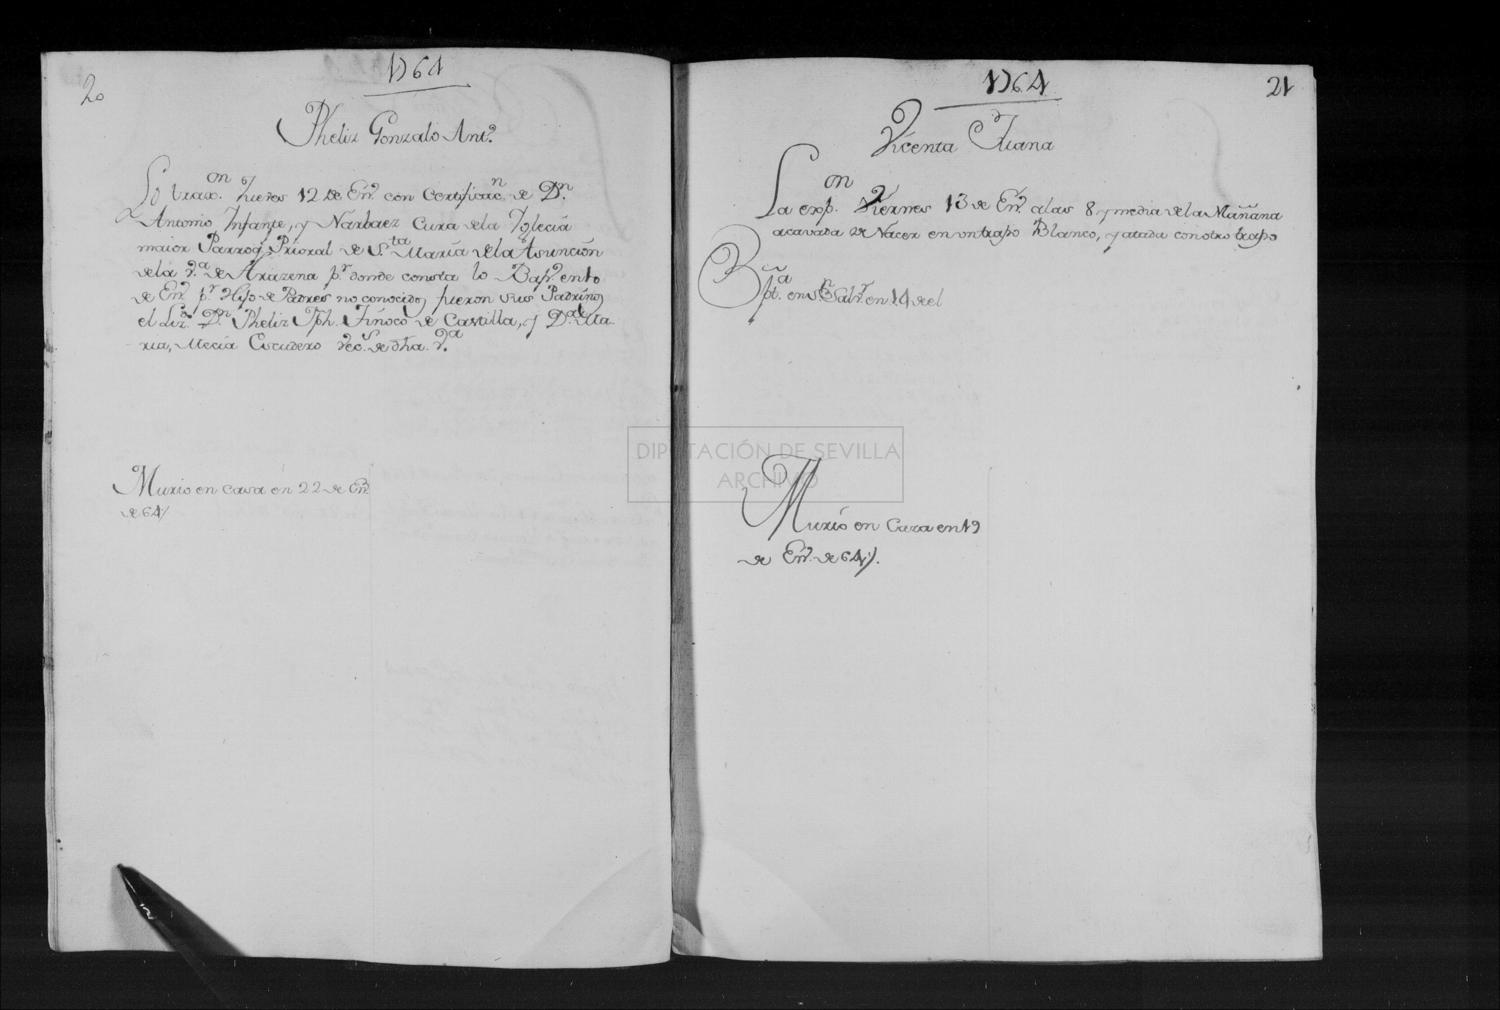 1764
20
Pheliz Gonzalo Ant.º
Lo trax.on Jueves 12 de En.º con Certificac.n de D.n
Antonio Infante, y Narbaez Cura de la Yglecia
maior Parroq.l Prioral de S.ta María de la Asunción
de la v.a de Arazena p.r donde consta lo Bap.
de En.º p.r Hijo de Padres no conocidos, fueron sus Padrinos
el Liz.do D.n Pheliz Jph. Tinoco de Castilla, y D.a Ma
ria, Mecia Escudero vec.s de dha. v.a
Murio en casa en 22 de En.º
de 64/
1764
21
Vicenta Juana
La exp.on Viernes 13 de En.º a las 8 y media de la Mañana
acavada de Nacer en un trapo Blanco, y atada con otro trapo
Bpt.a en S.n Salv.r en 14 de el
Murió en Casa en 19
de En.º de 64/.
DIPUTACIÓN DE SEVILLA
ARCHIVO